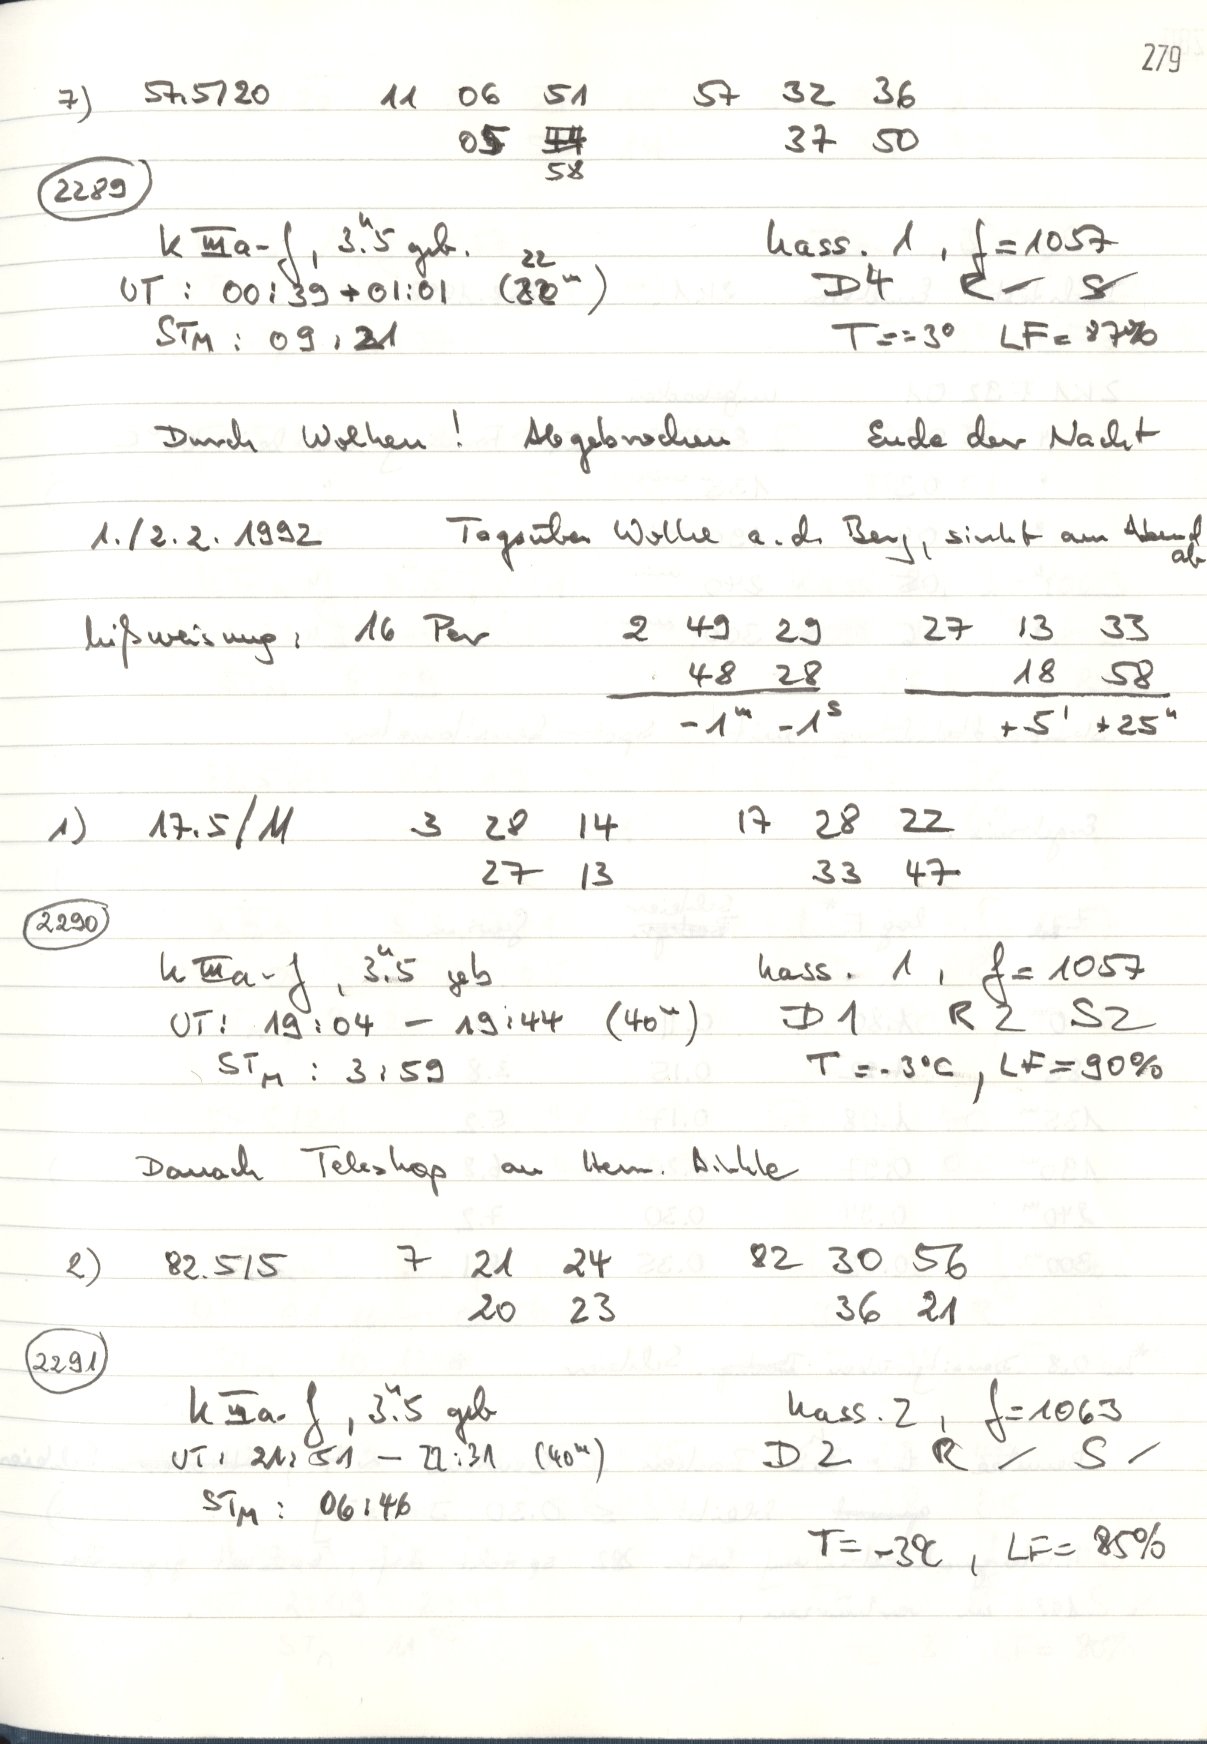 279
7) 57.5/20 11 06 51 57 32 36
05 44 37 50
58
2289
K IIIa-J, 3."5 geb. Kass. 1, f=1057
22
UT: 00:39 → 01:01 (22m) D4 R – S –
STM: 09:21 T=-3° LF=87%
Durch Wolken! Abgebrochen Ende der Nacht
1./2.2.1992 Tagsüber Wolke a.d. Berg, sinkt am Abend
ab
Mißweisung: 16 Per 2 49 29 27 13 33
48 28 18 58
-1m -1s +5' +25"
1) 17.5/11 3 28 14 17 28 22
27 13 33 47
2290
K IIIa-J, 3."5 geb Kass. 1, f=1057
UT: 19:04 – 19:44 (40m) D1 R2 S2
STM: 3:59 T=-3°C, LF=90%
Danach Teleskop an Herm.
2) 82.5/5 7 21 24 82 30 56
20 23 36 21
2291
K IIIa-J, 3."5 geb Kass. 2, f=1063
UT: 21:51 – 22:31 (40m) D2 R – S –
STM: 06:46
T=-3°C, LF=85%